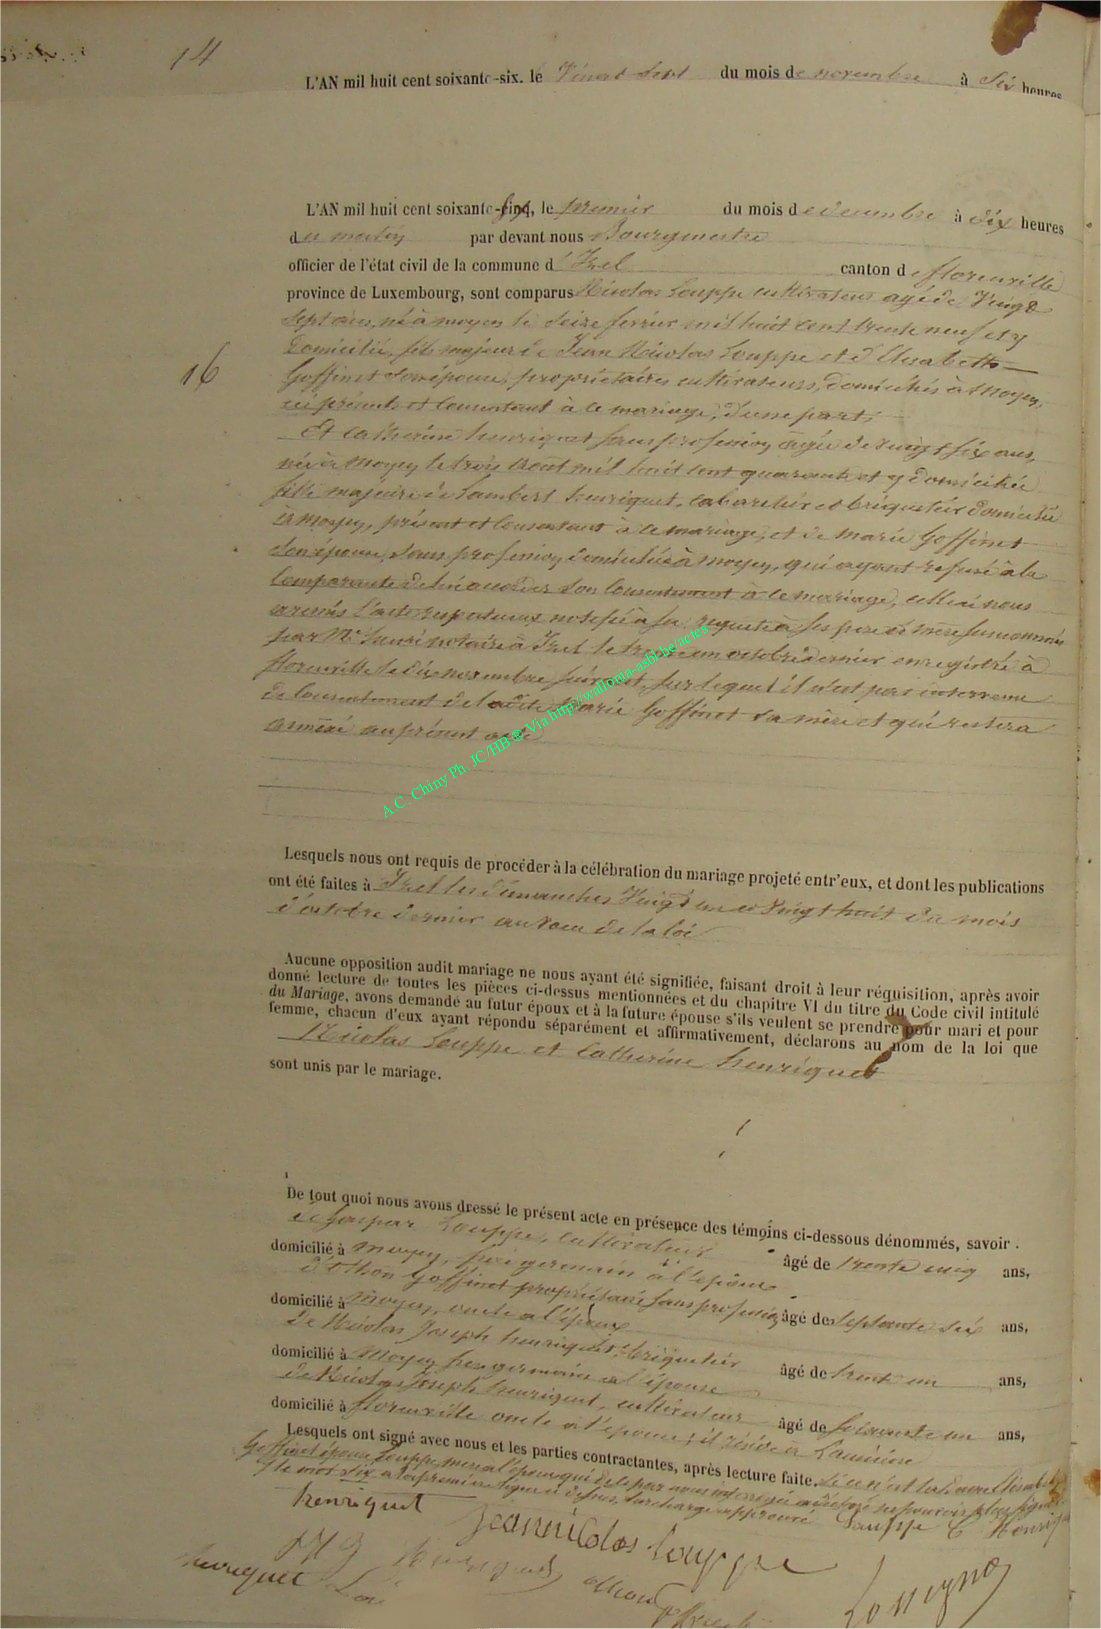 14
L'AN mil huit cent soixante-six. le Vingt Sept du mois de novembre à Dix heures
L'AN mil huit cent soixante-six, le premier du mois de decembre à dix heures
du matin par devant nous Bourgmestre
officier de l'état civil de la commune d'Izel canton de florenville
province de Luxembourg, sont comparus Nicolas Louppe cultivateur agé de Vingt
Sept ans, né à moyen le seize fevrier mil huit cent trente neuf et y
16
Domicilié, fils majeur de Jean Nicolas Louppe et d'Elisabeth
Goffinet son épouse, propriétaires cultivateurs, domiciliés à Moyen,
ici présents et Consentant à ce mariage, d'une part;
Et Catherine henriquet sans profession agée de vingt six ans,
née à Moyen le trois Août mil huit cent quarante et y domiciliée
fille majeure de Lambert henriquet, cabaretier et briquetier domicilié
à Moyen, présent et Consentant à ce mariage, et de marie Goffinet
son épouse, sans profession, domiciliée à Moyen, qui ayant refusé à la
Comparante de lui accorder son Consentement à ce mariage, celle ci nous
a remis l'acte respectueux notifié à sa requête à ses père et mère susnommés
par Mr notaire à Izel le trente un octobre dernier enregistré à
florenville le dix novembre suivant, sur lequel il n'est pas intervenu
de Consentement de la dite Marie Goffinet sa mère et qui restera
annexé au présent acte
A.C. Chiny Ph. JC/HB @ Via http://wallonia-asbl.be/actes
Lesquels nous ont requis de procéder à la célébration du mariage projeté entr'eux, et dont les publications
ont été faites à Izel les dimanches Vingt un et Vingt huit du mois
d'octobre dernier au vœu de la loi
Aucune opposition audit mariage ne nous ayant été signifiée, faisant droit à leur réquisition, après avoir
donné lecture de toutes les pièces ci-dessus mentionnées et du chapitre VI du titre du Code civil intitulé
du Mariage, avons demandé au futur époux et à la future épouse s'ils veulent se prendre pour mari et pour
femme, chacun d'eux ayant répondu séparément et affirmativement, déclarons au nom de la loi que
Nicolas Louppe et Catherine henriquet
sont unis par le mariage.
De tout quoi nous avons dressé le présent acte en présence des témoins ci-dessous dénommés, savoir :
de Gaspar Louppe, cultivateur âgé de trente cinq ans,
domicilié à moyen, frère germain à l'époux
d'Othon Goffinet propriétaire sans profession âgé de Septante six ans,
domicilié à moyen, oncle à l'époux
de Nicolas Joseph henriquet, briquetier âgé de trente un ans,
domicilié à Moyen frère germain à l'épouse
de Nicolas Joseph henriquet, cultivateur âgé de soixante un ans,
domicilié à florenville oncle à l'épouse;
Lesquels ont signé avec nous et les parties contractantes, après lecture faite. Si ce n'est la dame Elisabeth
Goffinet épouse Louppe, mère à l'époux qui de la par nous interpelée a déclaré ne pouvoir plus signer
le mot six à la première ligne ci dessus, surcharge approuvé Louppe C Henriquet
henriquet Jeannicolas Louppe
henriquet